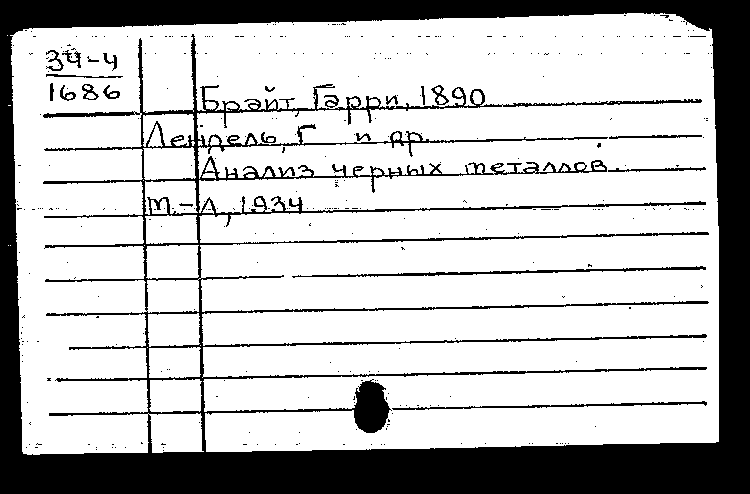 34-4
1686
Брэйт, Гарри, 1890
Лендель, Г и др.
Анализ черных металлов.
М.-Л, 1934